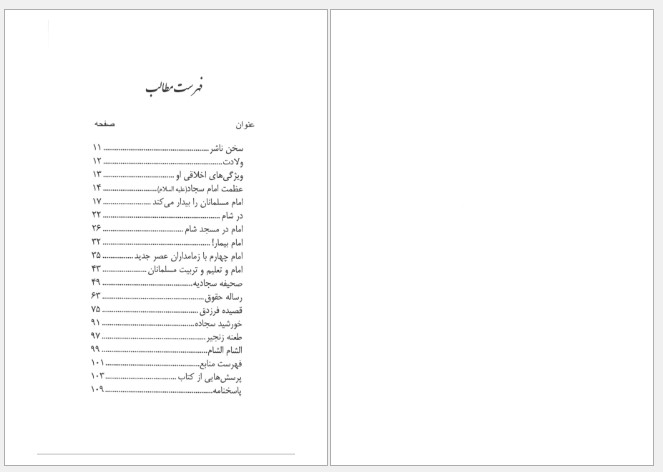 فهرست مطالب
عنوان صفحه
سخن ناشر ........................................ ۱۱
ولادت ........................................ ۱۲
ویژگی‌های اخلاقی او ........................................ ۱۳
عظمت امام سجاد(علیه السلام) ........................................ ۱۴
امام مسلمانان را بیدار می‌کند ........................................ ۱۷
در شام ........................................ ۲۲
امام در مسجد شام ........................................ ۲۶
امام بیمار! ........................................ ۳۲
امام چهارم با زمامداران عصر جدید ........................................ ۳۵
امام و تعلیم و تربیت مسلمانان ........................................ ۴۳
صحیفه سجادیه ........................................ ۴۹
رساله حقوق ........................................ ۶۳
قصیده فرزدق ........................................ ۷۵
خورشید سجاده ........................................ ۹۱
طعنه زنجیر ........................................ ۹۷
الشام الشام ........................................ ۹۹
فهرست منابع ........................................ ۱۰۱
پرسش‌هایی از کتاب ........................................ ۱۰۳
پاسخنامه ........................................ ۱۰۹